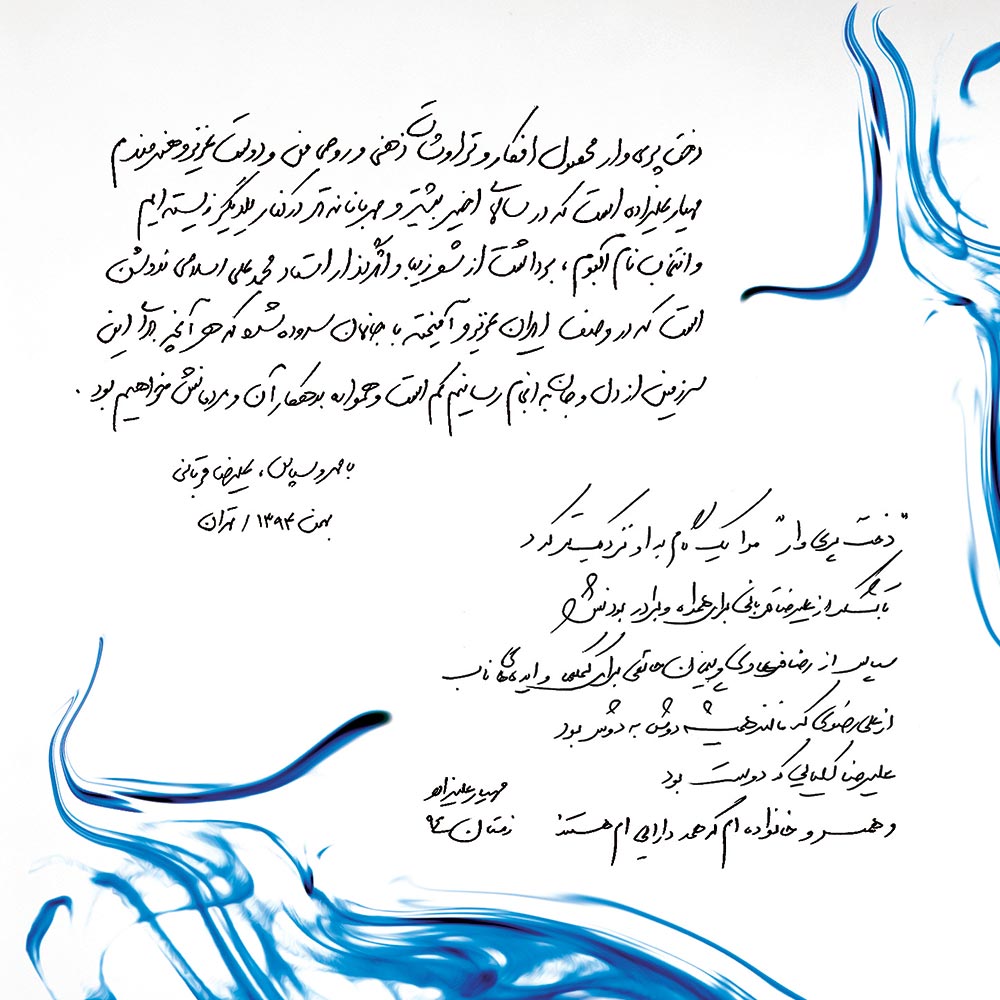 دخت پری وار محصول افکار و تراوشات ذهنی و روحی من و دوست عزیز و هنرمندم
مهیار علیزاده است که در سالهای اخیر بیشتر و مهربانانه تر در کنار یکدیگر زیسته ایم
و انتخاب نام آلبوم ، برداشت از شعر زیبا و اثرگذار استاد محمدعلی اسلامی ندوشن
است که در وصف ایران عزیز و آمیخته با جانمان سروده شده که هر آنچه برای این
سرزمین از دل و جان به انجام رسانیم کم است و همواره بدهکار آن و مردمانش خواهیم بود .
با مهر و سپاس ، علیرضا قربانی
بهمن ۱۳۹۴ / تهران
"دخت پری وار" مرا یک گام به او نزدیکتر کرد
با تشکر از علیرضا قربانی برای همراه و برادر بودنش
سپاس از رضا فرهادی و پیمان خانقی برای کمکها و ایده های ناب
از علی رضوی که مانند همیشه دوش به دوش بود
علیرضا که دوست بود
و همسر و خانواده ام که همه دارایی ام هستند
مهیار علیزاده
زمستان ۹٤